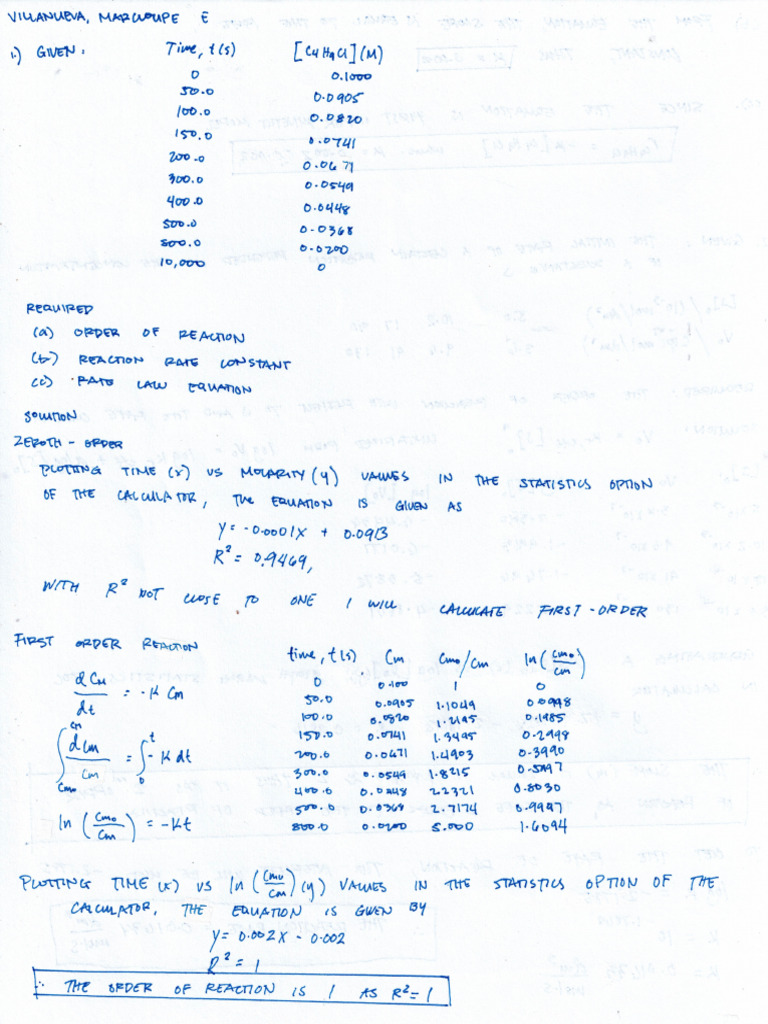 VILLANUEVA, MARCLOUPE E
1.) GIVEN: Time, t(s) [C4H9Cl](M)
0 0.1000
50.0 0.0905
100.0 0.0820
150.0 0.0741
200.0 0.0671
300.0 0.0549
400.0 0.0448
500.0 0.0368
800.0 0.0200
10,000 0
REQUIRED
(a) ORDER OF REACTION
(b) REACTION RATE CONSTANT
(c) RATE LAW EQUATION
SOLUTION
ZEROTH - ORDER
PLOTTING TIME (x) VS MOLARITY (y) VALUES IN THE STATISTICS OPTION
OF THE CALCULATOR, THE EQUATION IS GIVEN AS
y = -0.0001x + 0.0913
R² = 0.9469,
WITH R² NOT CLOSE TO ONE I WILL CALCULATE FIRST-ORDER
FIRST ORDER REACTION
dCm/dt = -K Cm
∫Cmo^Cm dCm/Cm = ∫0^t -K dt
ln(Cmo/Cm) = -Kt
time, t(s) Cm Cmo/Cm ln(Cmo/Cm)
0 0.100 1 0
50.0 0.0905 1.1049 0.0998
100.0 0.0820 1.2195 0.1985
150.0 0.0741 1.3495 0.2998
200.0 0.0671 1.4903 0.3990
300.0 0.0549 1.8215 0.5997
400.0 0.0448 2.2321 0.8030
500.0 0.0368 2.7174 0.9997
800.0 0.0200 5.000 1.6094
PLOTTING TIME (x) VS ln(Cmo/Cm)(y) VALUES IN THE STATISTICS OPTION OF THE
CALCULATOR, THE EQUATION IS GIVEN BY
y = 0.002x - 0.002
R² = 1
∴ THE ORDER OF REACTION IS 1 AS R² = 1